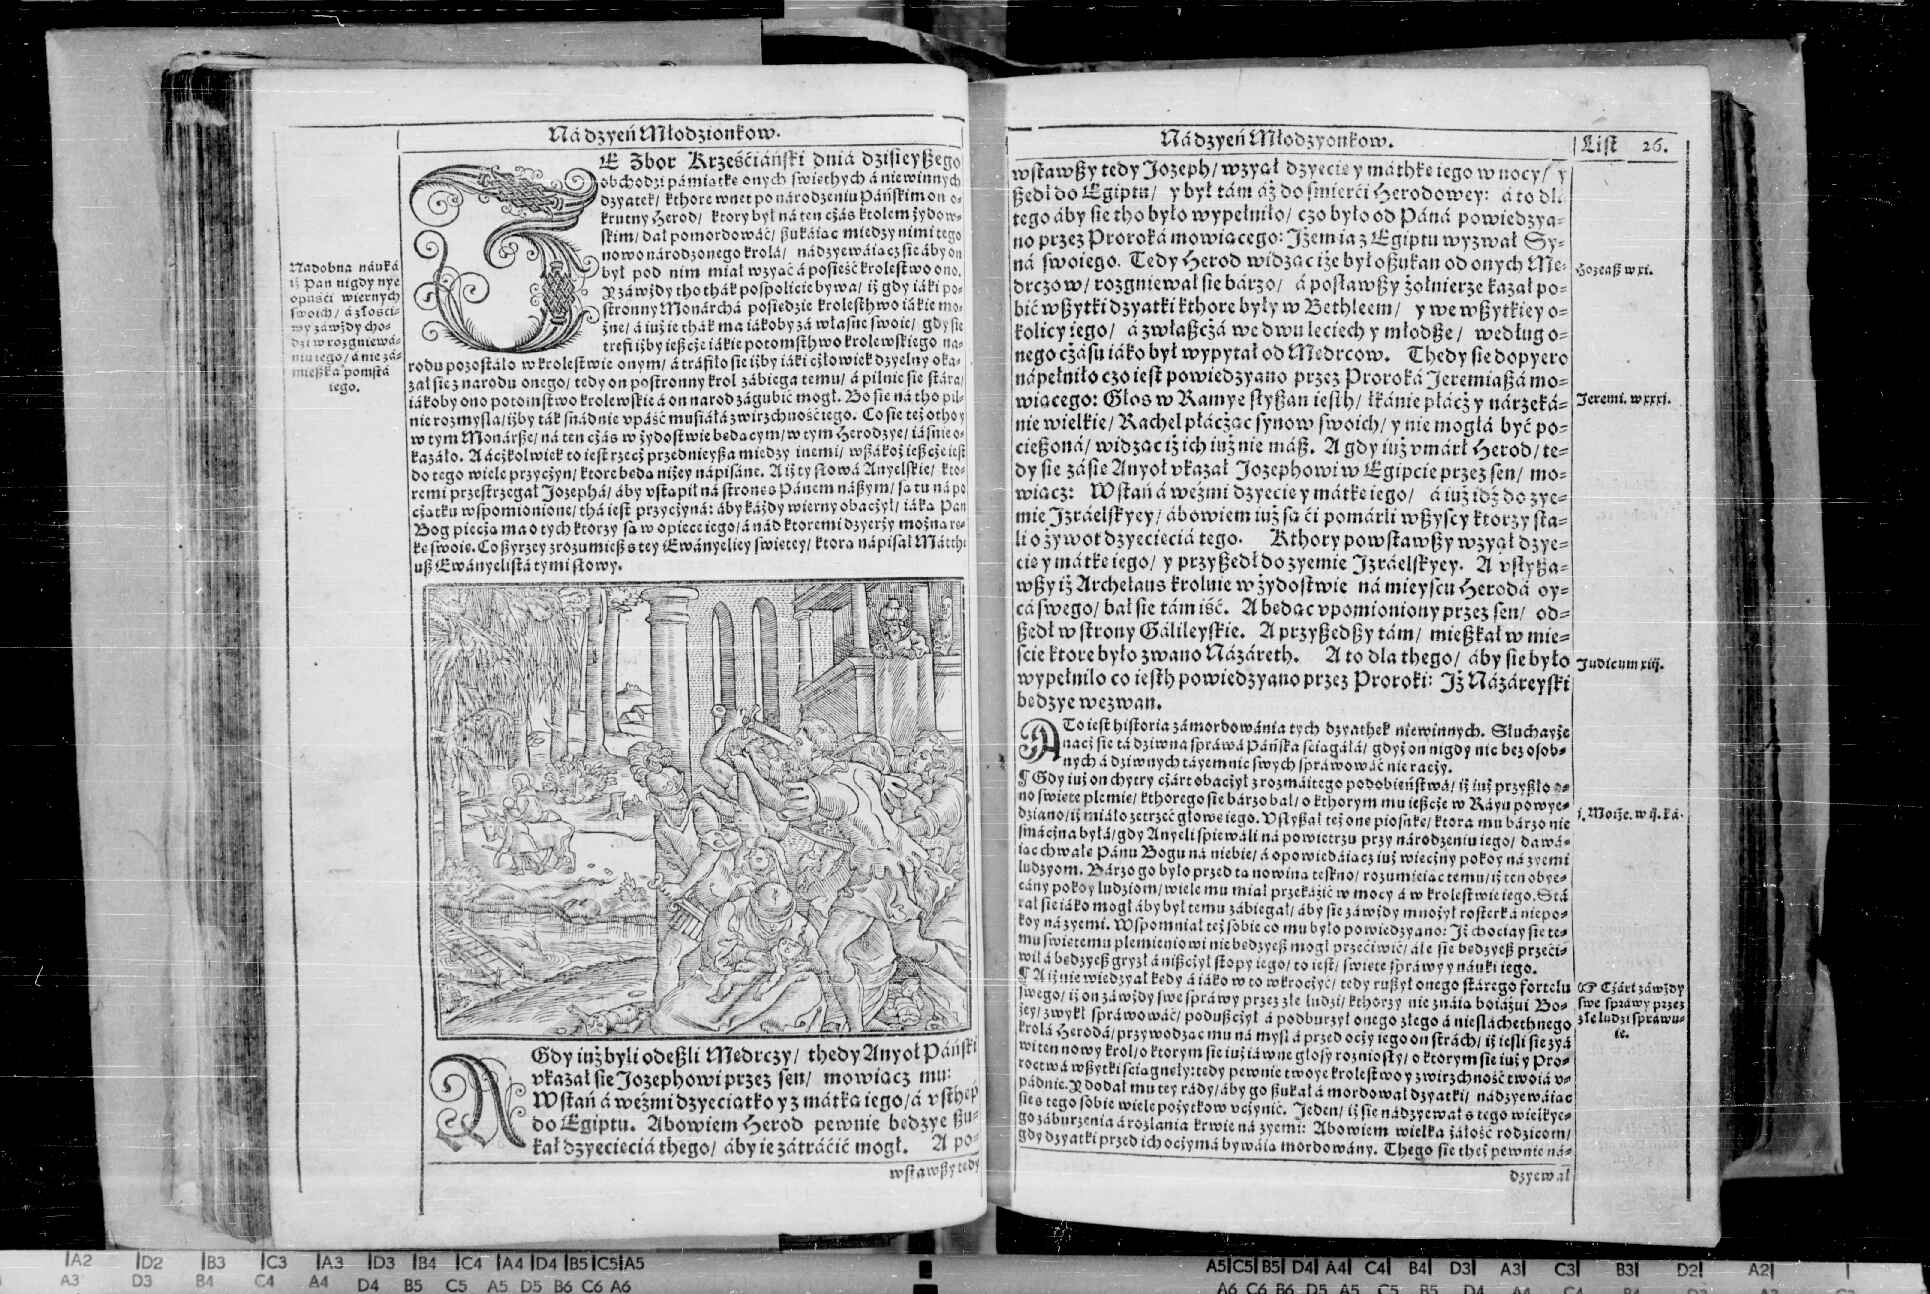 Ná dzyeń Młodzionkow.
Nadobna náuká
iż Pan nigdy nye
opuśći wiernych
swoich / á złości-
wy záwżdy cho-
dzi w rozgniewá-
niu iego / á nie zá-
mießka pomstá
iego.
IE Zbor Krześćiáński dniá dzisieyßego
obchodzi pámiątkę onych swięthych á niewinnych
dzyatek / kthore wnet po národzeniu Páńskim on o-
krutny Herod / ktory był ná ten cżás krolem żydow-
skim / dał pomordowáć / ßukáiąc miedzy nimi tego
nowo národzonego krolá / nádzyewáiącz się áby on
był pod nim miał wzyąć á posieść krolestwo ono.
Y záwżdy tho thák pospolicie bywa / iż gdy iáki po-
stronny Monárchá posiędzie krolesthwo iákie mo-
żne / á iuż ie thák ma iákoby zá własne swoie / gdy się
trefi iżby ießcże iákie potomsthwo krolewskiego na-
rodu pozostáło w krolestwie onym / á tráfiło się iżby iáki cżłowiek dzyelny oka-
zał się z narodu onego / tedy on postronny krol zábiega temu / á pilnie się stára /
iákoby ono potomstwo krolewskie á on narod zágubić mogł. Bo się ná tho pil-
nie rozmysla / iżby ták snádnie vpáść musiáłá zwirzchność iego. Co się też otho y
w tym Monárße / ná ten cżás w żydostwie będącym / w tym Herodzye / iáśnie o-
kazáło. A ácżkolwiek to iest rzecż przednieyßa miedzy inemi / wßákoż ießcże iest
do tego wiele przycżyn / ktore będą niżey nápisáne. A iż ty słowá Anyelskie / kto-
remi przestrzegał Jozephá / áby vstąpił ná stronę s Pánem náßym / są tu ná po
cżątku wspomionione / thá iest przycżyná: áby káżdy wierny obacżył / iáka Pan
Bog piecżą ma o tych ktorzy są w opiece iego / á nád ktoremi dzyerży możną rę-
kę swoię. Co ßyrzey zrozumieß s tey Ewányeliey swiętey / ktorą nápisał Mátthe
uß Ewányelistá tymi słowy.
A Gdy iuż byli odeßli Mędrczy / thedy Anyoł Páński
vkazał się Jozephowi przez sen / mowiącz mu:
Wstań á weźmi dzyeciątko y z mátką iego / á vsthęp
do Egiptu. Abowiem Herod pewnie będzye ßu-
kał dzyecięciá thego / áby ie zátráćić mogł. A po-
wstawßy tedy
Ná dzyeń Młodzyonkow.
List 26.
wstawßy tedy Jozeph / wzyął dzyecię y máthkę iego w nocy / y
ßedł do Egiptu / y był tám áż do śmierći Herodowey: á to dla
tego áby się tho było wypełniło / czo było od Páná powiedzya-
no przez Proroká mowiącego: Jżem ia z Egiptu wyzwał Sy-
ná swoiego. Tedy Herod widząc iże był oßukan od onych Mę-
drczow / rozgniewał się bárzo / á posławßy żołnierze kazał po-
bić wßytki dzyatki kthore były w Bethleem / y we wßytkiey o-
kolicy iego / á zwłaßcżá we dwu leciech y młodße / według o-
nego cżásu iáko był wypytał od Mędrcow. Thedy się dopyero
nápełniło czo iest powiedzyano przez Proroká Jeremiaßá mo-
wiącego: Głos w Rámye słyßan iesth / łkánie płácż y nárzeká-
nie wielkie / Rachel płácżąc synow swoich / y nie mogłá być po-
cießoná / widząc iż ich iuż nie máß. A gdy iuż vmárł Herod / te-
dy się zásię Anyoł vkazał Jozephowi w Egipcie przez sen / mo-
wiącz: Wstań á weźmi dzyecię y mátkę iego / á iuż idź do zye-
mie Jzráelskyey / ábowiem iuż są ći pomárli wßyscy ktorzy stá-
li o żywot dzyecięciá tego. Kthory powstawßy wzyął dzye-
cię y mátkę iego / y przyßedł do zyemie Jzráelskyey. A vsłyßa-
wßy iż Archelaus kroluie w żydostwie ná mieyscu Herodá oy-
cá swego / bał się tám iść. A będąc vpomioniony przez sen / od-
ßedł w strony Gálileyskie. A przyßedßy tám / mießkał w mie-
ście ktore było zwano Názáreth. A to dla thego / áby się było
wypełniło co iesth powiedzyano przez Proroki: Jż Názáreyski
będzye wezwan.
Hozeaß w xi.
Jeremi. w xxxi.
Judicum xiij.
A To iest historia zámordowánia tych dzyathek niewinnych. Słuchayże
nacż się tá dziwna spráwá Páńska sciągáłá / gdyż on nigdy nic bez osob-
nych á dziwnych táyemnic swych spráwowáć nie racży.
¶ Gdy iuż on chytry cżárt obacżył z rozmáitego podobieństwá / iż iuż przyßło o-
no swięte plemię / kthorego się bárzo bał / o kthorym mu ießcże w Ráyu powye-
dziano / iż miáło zetrzeć głowę iego. Vsłyßał też onę piosnkę / ktora mu bárzo nie
smácżna byłá / gdy Anyeli spiewáli ná powietrzu przy národzeniu iego / dawá-
iąc chwałę Pánu Bogu ná niebie / á opowiedáiącz iuż wiecżny pokoy ná zyemi
ludzyom. Bárzo go było przed tą nowiną teskno / rozumieiąc temu / iż ten obye-
cány pokoy ludziom / wiele mu miał przekázić w mocy á w krolestwie iego. Stá
rał się iáko mogł áby był temu zábiegał / áby się záwżdy mnożył rosterk á niepo-
koy ná zyemi. Wspomniał też sobie co mu było powiedzyano: Jż chociay się te-
mu swiętemu plemieniowi nie będzyeß mogł przećiwić / ále się będzyeß przeći-
wił á będzyeß gryzł á nißcżył stopy iego / to iest / swięte spráwy y náuki iego.
¶ A iż nie wiedzyał kędy á iáko w to wkrocżyć / tedy rußył onego stárego fortelu
swego / iż on záwżdy swe spráwy przez złe ludzi / kthorzy nie znáią boiáźni Bo-
żey / zwykł spráwowáć / podußcżył á podburzył onego złego á nieslachethnego
krolá Herodá / przywodząc mu ná mysl á przed ocży iego on strách / iż iesli się zyá
wi ten nowy krol / o ktorym się iuż iáwne głosy rozniosły / o ktorym się iuż y Pro-
roctwá wßytki sciągnęły: tedy pewnie twoye krolestwo y zwirzchność twoiá v-
pádnie. Y dodał mu tey rády / áby go ßukał á mordował dzyatki / nádzyewáiąc
się s tego sobie wiele pożytkow vcżynić. Jeden / iż się nádzyewał s tego wielkye-
go záburzenia á rozlania krwie ná zyemi: Abowiem wielka żáłość rodzicom /
gdy dzyatki przed ich ocżymá bywáią mordowány. Thego się też pewnie ná-
dzyewał
i. Moiże. w ij. ká.
☞ Cżárt záwżdy
swe spráwy przez
złe ludzi spráwu-
ie.
A2 D2 B3 C3 A3 D3 B4 C4 A4 D4 B5 C5 A5
A3 D3 B4 C4 A4 D4 B5 C5 A5 D5 B6 C6 A6
A5 C5 B5 D4 A4 C4 B4 D3 A3 C3 B3 D2 A2
A6 C6 B6 D5 A5 C5 B5 D4 A4 C4 B4 D3 A3 C3